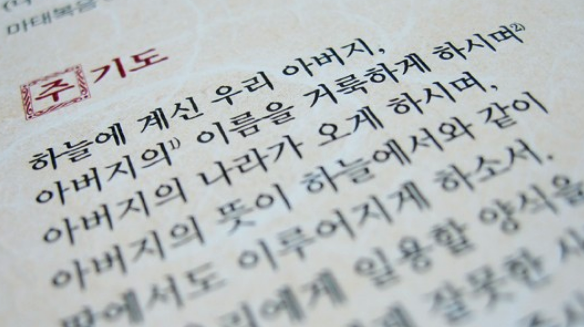 마태복음
주기도
하늘에 계신 우리 아버지,
아버지의1) 이름을 거룩하게 하시며2)
아버지의 나라가 오게 하시며,
아버지의 뜻이 하늘에서와 같이
땅에서도 이루어지게 하소서.
일용할 양식을
잘못한